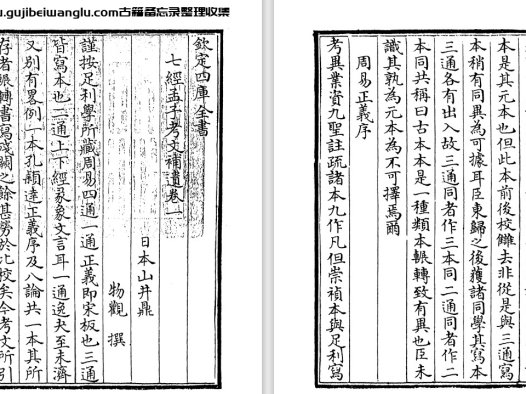 u.gujibeiwanglu.com古籍备忘录整理收集
欽定四庫全書
七經孟子考文補遺卷一
日本山井鼎
物觀 撰
謹按足利學所藏周易四通一通正義即宋板也三通
皆寫本也二通上下經彖象文言耳一通逸夬至未濟
又別有畧例一本孔穎達正義序及八論共一本其所
存者輾轉書寫殘闕之餘甚勞於比校矣今考文所引
本是其元本也但此本前後校讎去非從是與三通寫
本稍有同異為可據耳臣東歸之後獲諸同學其寫本
三通各有出入故三通同者作三本同二通同者作二
本同共稱曰古本本是一種類本輾轉致有異也臣未
識其孰為元本為不可擇焉爾
周易正義序
考異業資九聖註疏諸本九作凡但崇禎本與足利寫